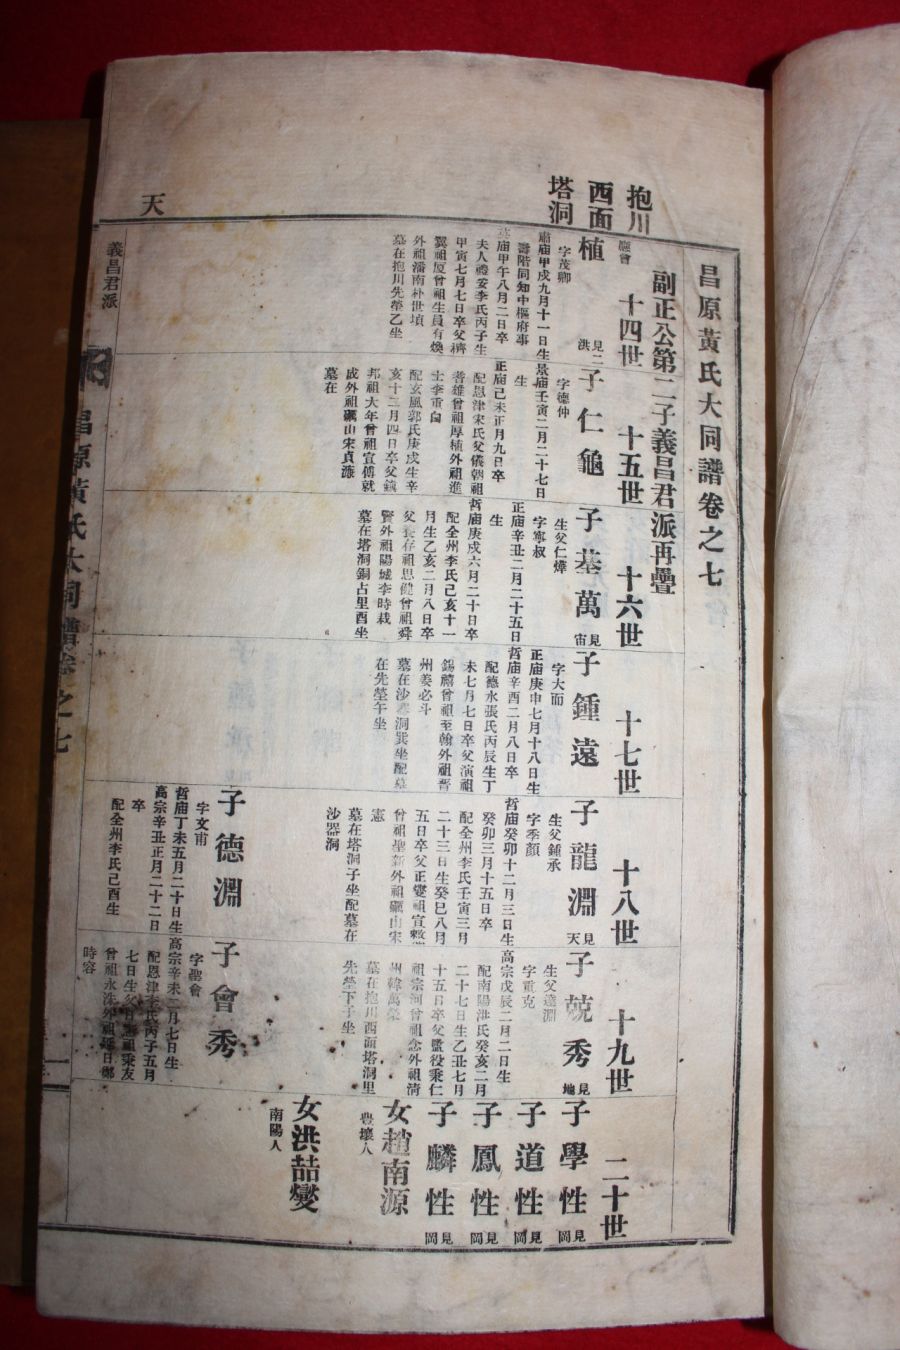 昌原黃氏大同譜卷之七
副正公第二子義昌君派再疊
抱川
西面
塔洞
天
十四世
植
見二
洪
字茂卿
肅廟甲戌九月十一日生
壽階同知中樞府事
英廟甲午八月二日卒
夫人禮安李氏丙子生
甲寅七月七日卒父濟
翼祖厦曾祖生員有煥
外祖潘南朴世塤
墓在抱川先塋乙坐
十五世
子仁龜
字德仲
景廟壬寅二月二十七日
生
正廟己未正月九日卒
配恩津宋氏父儀朝祖
耆雄曾祖厚植外祖進
士李重白
配玄風郭氏庚戌生辛
亥十二月四日卒父鎮
邦祖大年曾祖宣傳就
成外祖礪山宋貞濂
墓在
十六世
子基萬
見
宙
生父仁燁
字寧叔
正廟辛丑二月二十五日
生
哲廟庚戌六月二十日卒
配全州李氏己亥十一
月生乙亥二月八日卒
父養存祖思健曾祖舜
賢外祖陽城李時栽
墓在塔洞銅占里酉坐
十七世
子鍾遠
字大而
正廟庚申七月十八日生
哲廟辛酉二月八日卒
配德水張氏丙辰生丁
未七月七日卒父演祖
錫禧曾祖至翰外祖晋
州姜必斗
墓在沙器洞巽坐配墓
在先塋午坐
十八世
子龍淵
見
天
生父鍾承
字季顏
哲廟癸卯十二月三日生
癸卯三月十五日卒
配全州李氏壬寅三月
二十三日生癸巳八月
五日卒父正燮祖宣
曾祖聖新外祖礪山宋
憲
墓在塔洞子坐配墓在
沙器洞
子德淵
字文甫
哲廟丁未五月二十日生
高宗辛丑正月二十二日
卒
配全州李氏己酉生
十九世
子兢秀
見
地
生父達淵
字重克
高宗戊辰二月二日生
配南陽洪氏癸亥二月
二十七日生乙丑七月
十五日卒父監役秉仁
祖宗河曾祖念外祖淸
州韓萬榮
墓在抱川西面塔洞里
先塋下子坐
子會秀
字聖會
高宗辛未二月七日生
配恩津李氏丙子五月
七日生父日祖秉友
曾祖永洙外祖延日鄭
時容
二十世
子學性
見
岡
子道性
見
岡
子鳳性
見
岡
子麟性
見
岡
女趙南源
豊壤人
女洪喆燮
南陽人
義昌君派
昌原黃氏大同譜卷之七